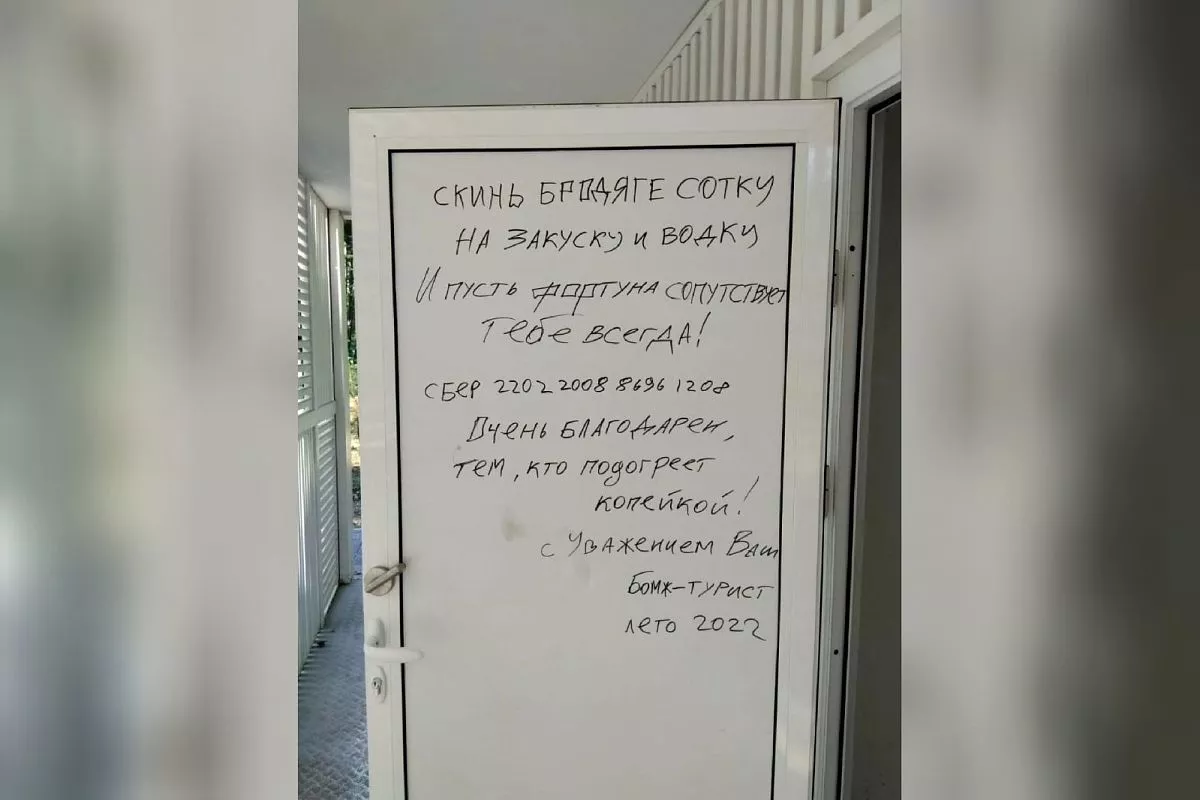 СКИНЬ БРОДЯГЕ СОТКУ
НА ЗАКУСКУ И ВОДКУ
И ПУСТЬ ФОРТУНА СОПУТСТВУЕТ
ТЕБЕ ВСЕГДА!
СБЕР 2202 2008 8696 1208
ОЧЕНЬ БЛАГОДАРЕН,
ТЕМ, КТО ПОДОГРЕЕТ
КОПЕЙКОЙ!
С УВАЖЕНИЕМ ВАШ
БОМЖ-ТУРИСТ
ЛЕТО 2022